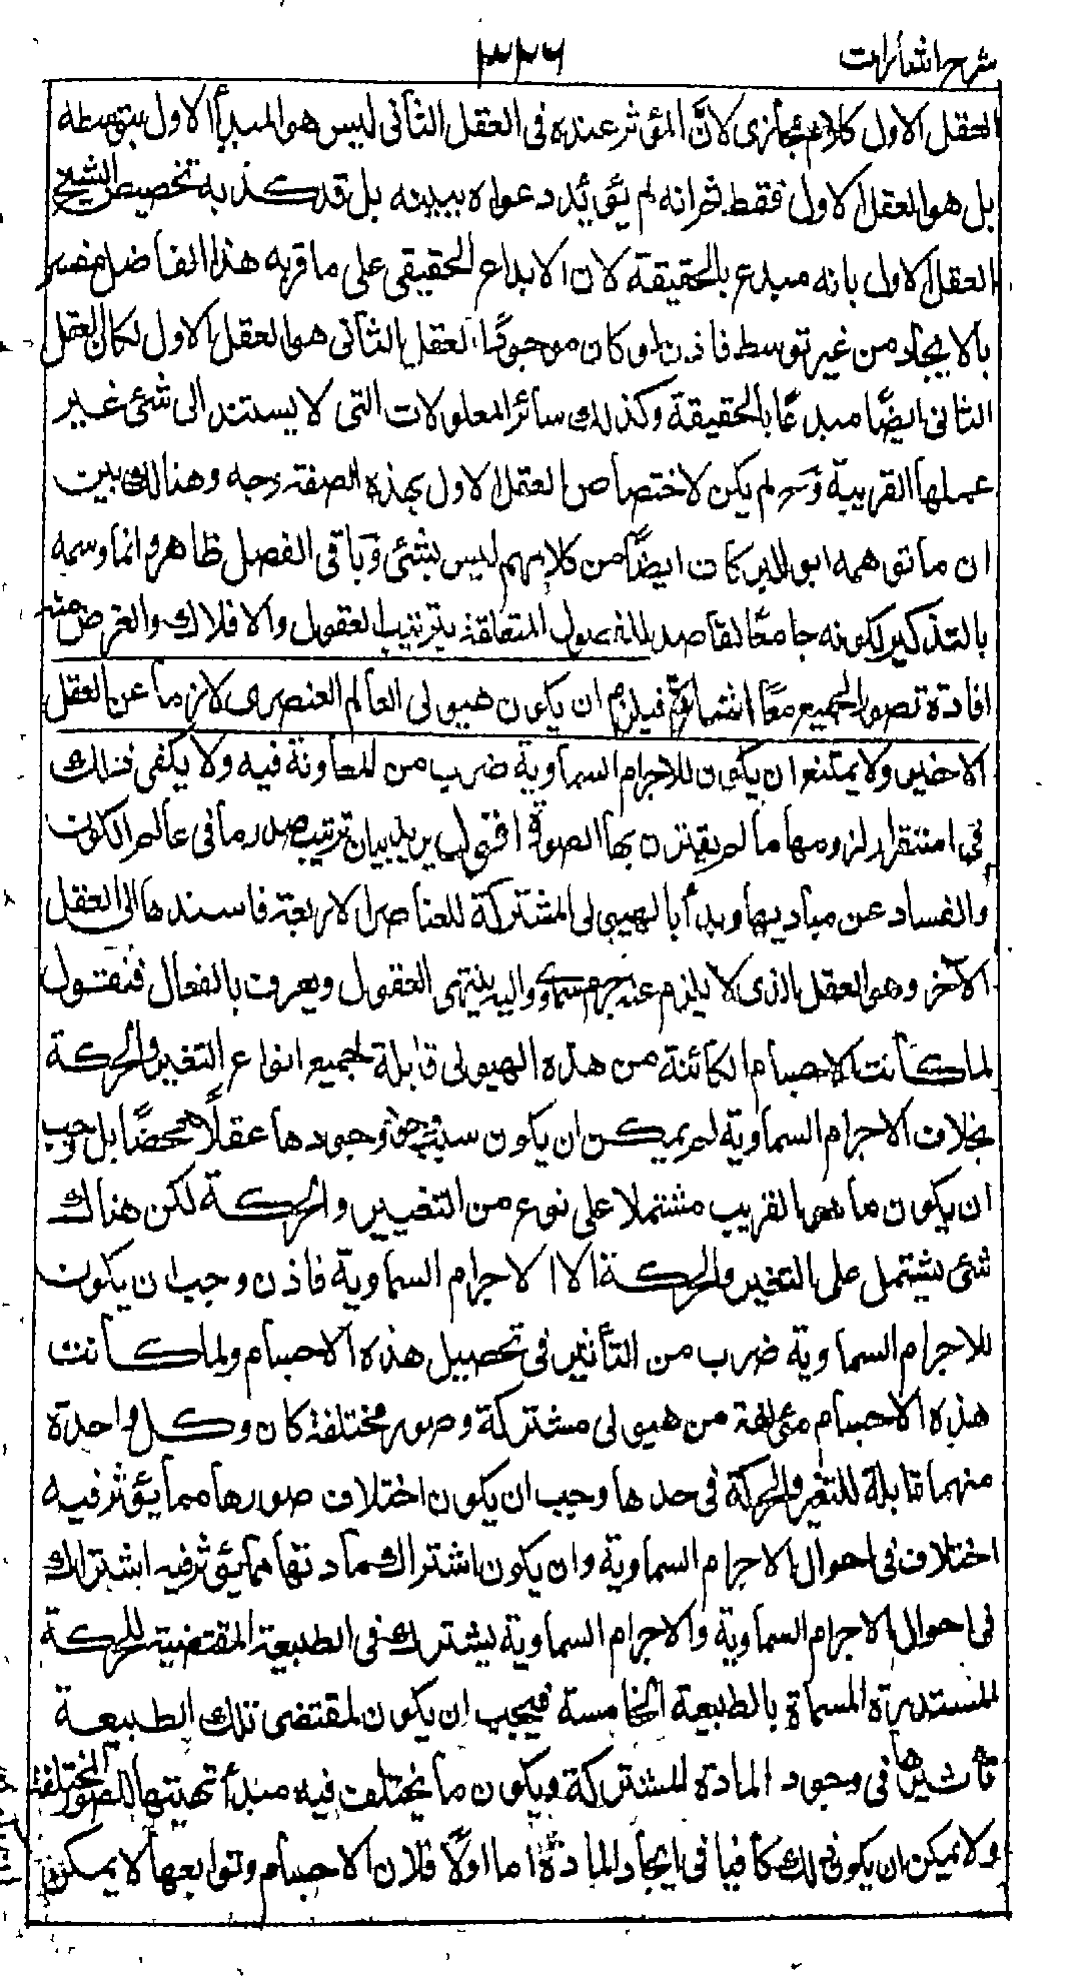 شرح اشارات
٣٣٦
العقل الاول كلام مجازى لانّ المؤثر عنده فى العقل الثانى ليس هو المبدأ الاول بتوسطه
بل هو العقل الاول فقط ثم انه لم يؤيد دعواه ببينه بل قد كذبه تخصيص الشيخ
العقل الاول بانه مبدع بالحقيقة لان الابداع الحقيقى على ما قربه هذا الفاضل مفسر
بالايجاد من غير توسط فاذن لو كان موجودًا العقل الثانى هو العقل الاول لكان العقل
الثانى ايضًا مبدعًا بالحقيقة وكذلك سائر المعلولات التى لا يستند الى شئ غير
عللها القريبة وح لم يكن لاختصاص العقل الاول بهذه الصفة وجه وهنالك يبين
ان ما توهمه ابو البركات ايضًا من كلامهم ليس بشئ وباقى الفصل ظاهر وانما وسمه
بالتذكير لكونه جامعًا لمقاصد الفصول المتعلقة بترتيب العقول والافلاك والغرض منه
افادة تصور الجميع معًا اشارة فيلزم ان يكون هيولى العالم العنصرى لازما عن العقل
الاخير ولا يمتنع ان يكون للاجرام السماوية ضرب من المعاونة فيه ولا يكفى ذلك
فى استقرار لزومها ما لم يقترن بها الصورة اقول يريد بيان ترتيب صدور ما فى عالم الكون
والفساد عن مباديها وبدأ بالهيولى المشتركة للعناصر الاربعة فاسندها الى العقل
الآخر وهو العقل الذى لا يلزم عنه جرم سماوى واليه ينتهى العقول ويعرف بالفعال فنقول
لما كانت الاجسام الكائنة من هذه الهيولى قابلة لجميع انواع التغير والحركة
بخلاف الاجرام السماوية لم يمكن ان يكون سبب وجودها عقلًا محضًا بل وجب
ان يكون ما هو القريب مشتملا على نوع من التغيير والحركة لكن هناك
شئ يشتمل على التغير والحركة الا الاجرام السماوية فاذن وجب ان يكون
للاجرام السماوية ضرب من التأثير فى تحصيل هذه الاجسام ولما كانت
هذه الاجسام مؤلفة من هيولى مشتركة وصور مختلفة كان وكل واحدة
منهما قابلة للتغير والحركة فى حدها وجب ان يكون اختلاف صورها مما يؤثر فيه
اختلاف فى احوال الاجرام السماوية وان يكون اشتراك مادتها مما يؤثر فيه اشتراك
فى احوال الاجرام السماوية والاجرام السماوية يشترك فى الطبيعة المقتضية للحركة
المستديرة المسماة بالطبيعة الخامسة فيجب ان يكون لمقتضى تلك الطبيعة
تأثيرها فى وجود المادة المشتركة ويكون ما يختلف فيه مبدأ تهيئتها للصور المختلفة
ولا يمكن ان يكون ذلك كافيا فى ايجاد المادة اما اولًا فلان الاجسام وتوابعها لا يمكن